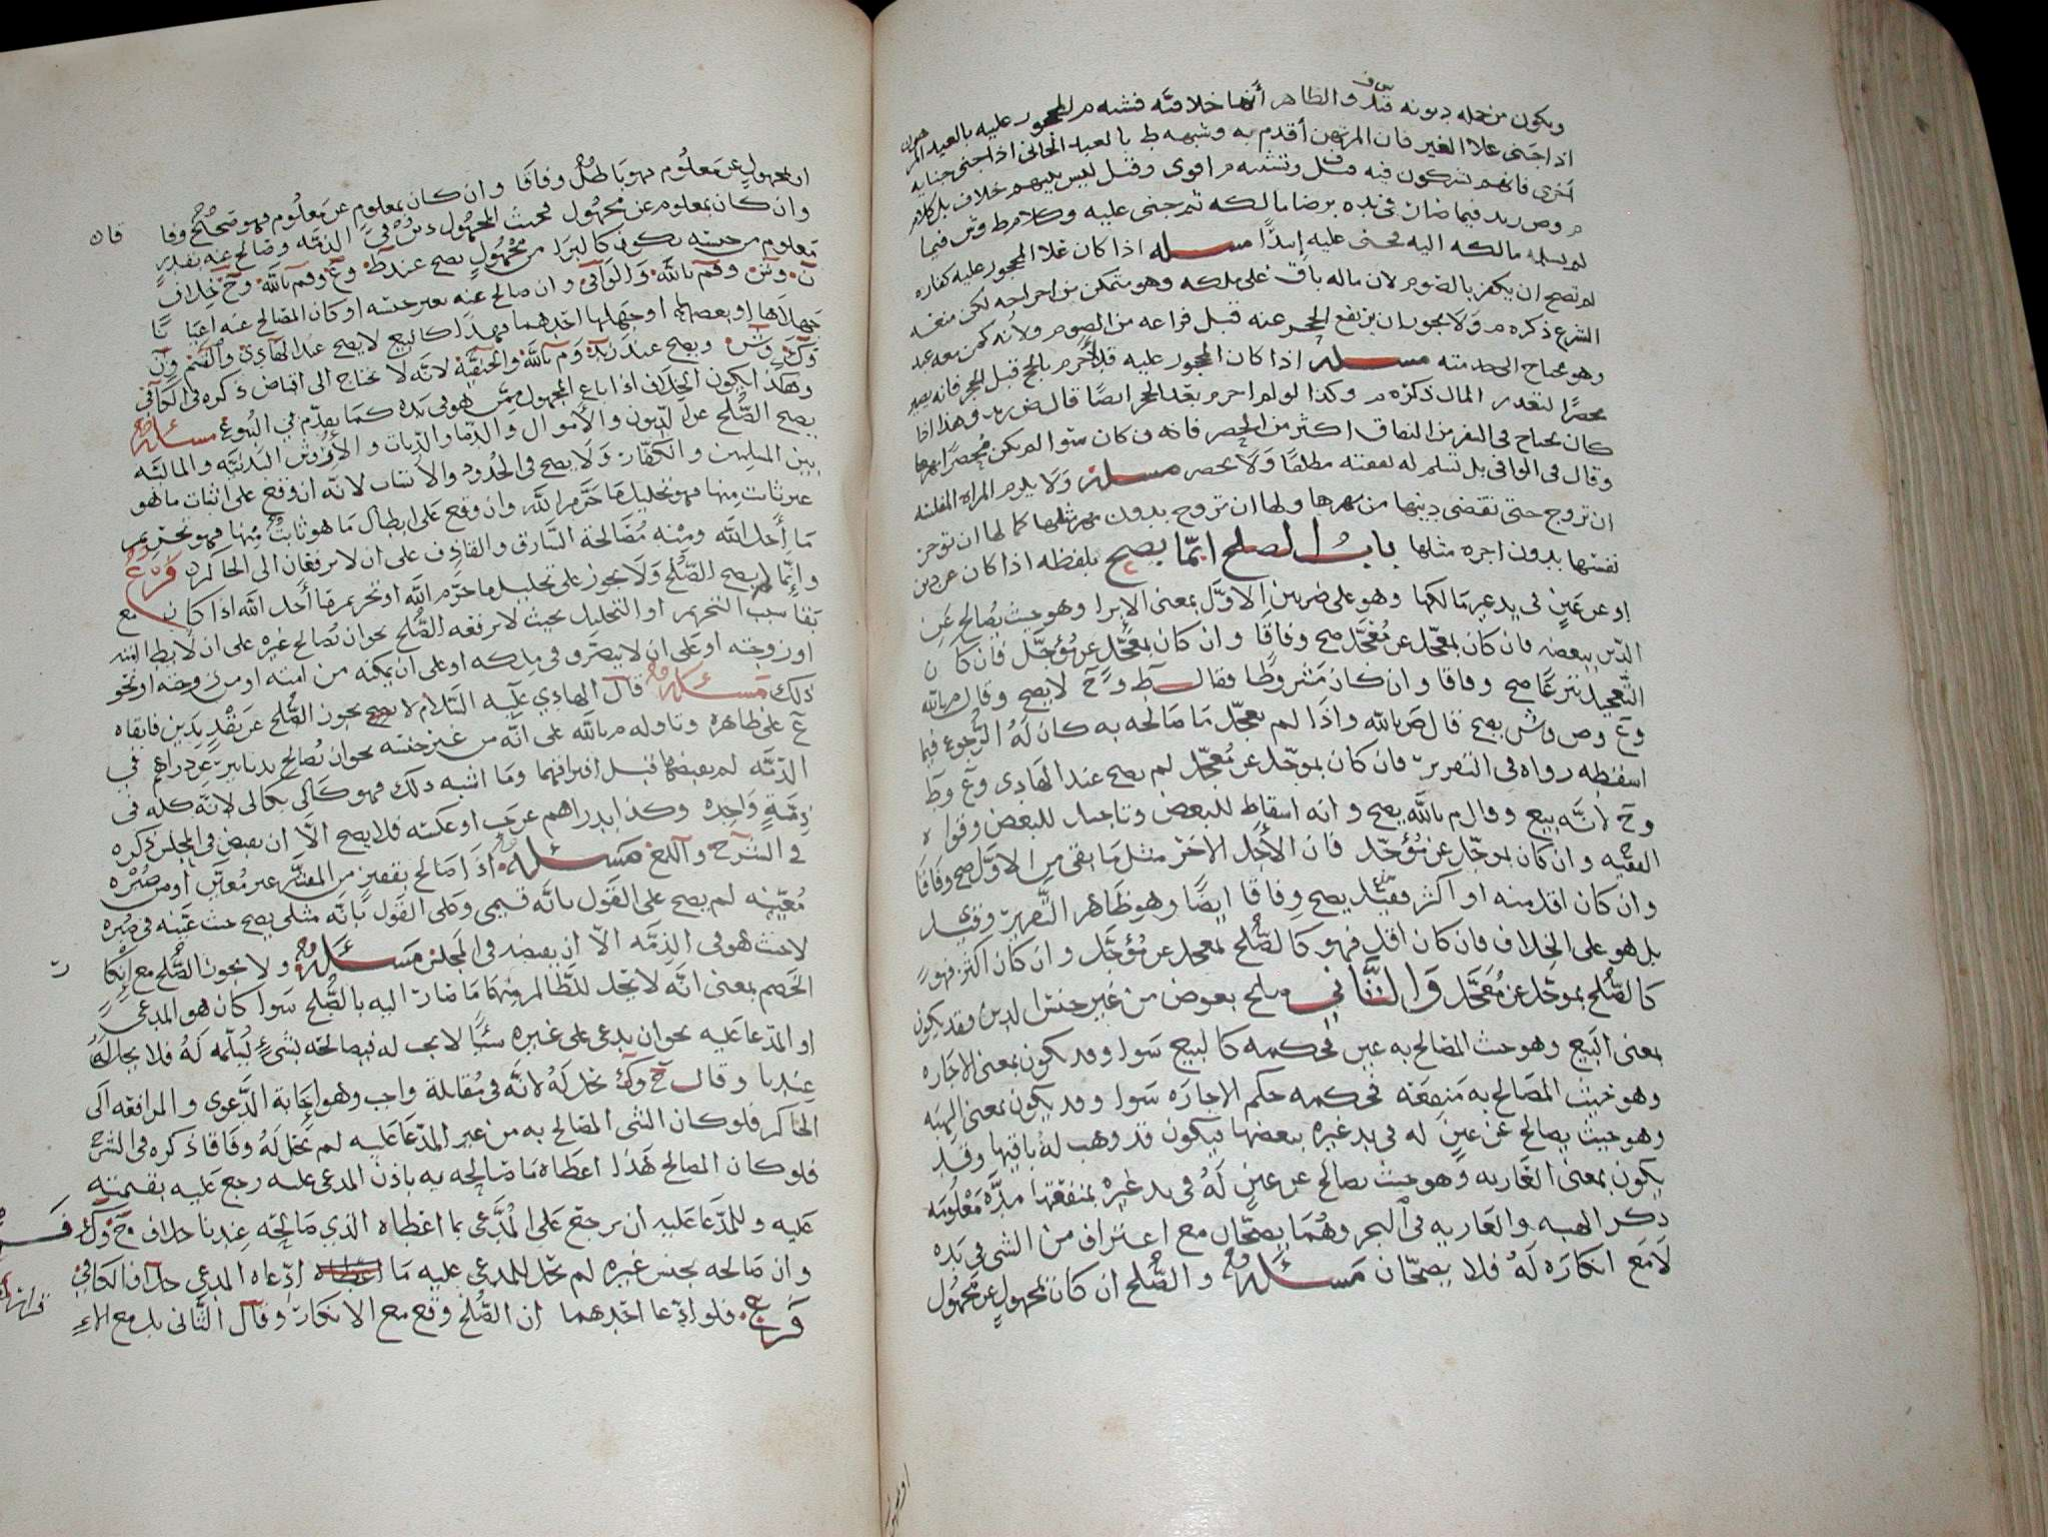 ويكون من جمله ديونه والظاهر أنها خلافيه فشبه م المحجور عليه بالعبد المرهون
اذا جنى على الغير فان المرتهن أقدم به وشبهه ط بالعبد الجاني اذا جنى جنايه
أخرى فانهم يشتركون فيه وتشبيه م اقوى وقيل ليس بينهم خلاف بل كلام
م وص ريد فيما صار في يده برضا مالكه ثم جنى عليه وكلام ط وش فيما
لم يسلمه مالكه اليه مجني عليه إبتدًا مسله اذا كان على المحجور عليه كفاره
لم تصح ان يكفر بالصوم لان ماله باق على ملكه وهو متمكن من اخراجه لكن منعه
الشرع ذكره م ولا يجوز ان يرتفع الحجر عنه قبل فراغه من الصوم ولأنه كمن معه عبد
وهو محتاج الى خدمته مسله اذا كان المحجور عليه قد أحرم بالحج قبل الحجر فانه يصير
محصرًا لتعذر المال ذكره م وكذا لو احرم بعد الحجر ايضًا قال ض زيد وهذا اذا
كان يحتاج في السفر من النفاق اكثر من الحضر فانه ان كان سوا لم يكن مُحصرًا بهما
وقال في الوافي بل تسلم له نفقته مطلقًا وَلا يحصر مسله وَلا يلزم المراه المفلسه
ان تزوج حتى تقضي دينها من مهرها ولها ان تزوج بدون مهر مثلها كما لها ان توجر
نفسها بدون اجره مثلها بابُ الصلح إنمّا يصح بلفظه اذا كان عن دين
او عن عَينٍ في يد غير مالكها وهو على ضربين الاوّل بمعنى الإبرا وهو حيث يُصالح عَن
الدّين ببعضه فان كان بمعجّل عن مُعَجّل صح وفاقًا وان كان بمعَجّل عن مُؤجّل فان كان
التعجيل تبرعًا صح وفاقا وان كان مَشروطًا فقال ط و ح لا يصح وقال م بالله
وع وص وش يصح قال ص بالله واذا لم يعجّل مَا صَالحه به كان لهُ الرُّجوع فيما
اسقطه رواه في التقرير فان كان بموجّل عن مُعجّل لم يصح عند الهادي وع وط
وح لانّه بيع وقال م بالله يصح وانه اسقاط للبعض وتاجيل للبعض وقواه
الفقيه وان كان بموجّل عن مُؤجّل فان الأجل الاخر مثل مَا بقي من الاوّل صح وفاقًا
وان كان اقل منه او اكثر فقيل يصح وِفاقا ايضًا وهو ظَاهر التّقرير وقيل
بل هو على الخِلاف فان كان اقل فهو كالصّلح بمعجل عن مُؤجّل وان كان اكثر فهو
كالصّلح بموجّل عن مُعَجّل وَالثّاني صلح بعوض من غير جنس الدين وقد يكون
بمعنى البَيع وهو حيث المصَالح به عين فحكمه كالبيع سَوا وقد يكون بمعنى الاجاره
وهو حَيث المصَالح به مَنفعَه فحكمه حكم الاجارَه سَوا وقد يكون بمعنى الهبَه
وهو حيث يصالح عَن عَينٍ له في يد غيره ببعضها فيكون قد وهب لهُ باقيها وقد
يكون بمعنى العَاريه وهو حيث يصالح عن عين لَهُ في يد غيره بمنفعتها مدّه مَعْلومَه
ذكر الهبه والعَاريه في البحر وهُمَا يصحّان مع اعتراف من الشى في يَده
لا مَع انكاره لهُ فلا يصحّان مَسئله والصّلح ان كان بمجهولٍ عن مَجهُول
او بمجهولٍ عن مَعلوُم فهو بَاطلٌ وفاقًا وان كان بمعلومٍ عن مَعلوُم فهو صَحيْح وفاقا
وان كان بمعلومٍ عن مجهُول فحيث المجهُول دين في الذمّه وصالح عنه بقدرٍ فان
معلومٍ من جنسه يكون كالبرا من مجهُول يصح عند ط وع وقم بالله وح خلاف
ن وش وقم بالله وَالوَافي وان صالح عنه بغير جنسه او كان المصَالح عنه اعيَانًا
جهلاها او بعضها او جهلها احَدهما فهذَا كالبيع لا يصح عند الهَادي والقسم ون
وك وش ويصح عند زيد وم بالله والحنفيّة لانّه لا يحتاج الى اقباض ذكره في الكافي
وهكذا يكون الخِلاف اذا باع المجهول ممّن هو في يَده كمَا تقدّم في البُيوع مسئله
يصح الصّلح عن الدّيون والأموال والدّما والدّيات والأرُوش البَدنيّه والماليَه
بين المسلمين والكفّار وَلا يصح في الحُدود والانساب لانّه ان وقع على اثبات ما هو
غير ثابت مِنها فهو تحليل مَا حَرّم اللّه وان وقع عَلى ابطال مَا هو ثابتٌ مِنها فهو تحريم
مَا أحل اللّه ومنه مُصَالحة السّارق والقاذِف على ان لا يرفعَان الى الحَاكم فرع
وإنّما لم يصح الصّلح وَلا يجوز على تحليل ما حَرّم اللّه او تحريم مَا أحل اللّه اذا كان مع
بقا سَبب التحريم او التحليل بحيث لا يرفعه الصّلح نحو ان يُصالح غيره على ان لا يطا امته
او زوجته او عَلى ان لا يتصَرّف في مِلكه او على ان يمكنه من امته او من زوجته او نحو
ذلك مسئله قال الهادي عَليه السَلام لا يجوز الصّلح عن نَقْدٍ بدين فابقاه
ع على ظاهره وتاوله م بالله على انّه من غير جنسه نحو ان يُصالح بدنانير عن دراهم في
الذمّه لم يقبضها قبل افتراقهما ومَا اشبه ذلك فهو كَالي بكالي لانّه كله في
ذِمّةٍ وَاحِده وكذا بدراهم عن حَب او عكسه فلا يصح الّا ان يقبض في المجلس ذكره
في الشرح واللمع مَسئله اذَا صَالح بقفيز من المقدّر غير مُعيّن أو من صُبْره
مُعَيّنه لم يصح على القَول بانّه قيمي وعَلى القَول بانّه مثلي يصح حيث عَيّنه في صُبره
لا حيث هو في الذمّه الّا ان يقبضه في المجلس مَسئله ولا يجوز الصّلح مع إنكار
الخَصم بمعنى انّه لا يَحل للظّالم منهما مَا صَار اليه بالصُلح سَوا كان هو المدعي
او المدّعَا عَليه نحو ان يدعي على غيره شيًا لا يجب له فيصالحه بشيءٍ ليسلّمه لهُ فلا يحل لهُ
عِندنا وقال ح وك يحل لهُ لانّه في مُقابلة واجب وهو إجَابة الدَّعوى والمرافعه الَى
الحَاكم فلو كان الشى المصالح به من غير المدّعَا عَليه لم يَحل لهُ وفَاقا ذكره في الشرح
فلو كان المصالح هذا اعطَاه مَا صَالحه به باذن المدعى عليه رجع عَليه بقيمته
عَليه وللمدّعَا عَليه أن يرجع عَلى المُدَّعي بما اعطاه الذي صَالحه عِندنا خلاف ح وك
وان صَالحه بجنس غيره لم تحل للمدعي عليه مَا إدّعاه المدعي خلاف الكافي
فرع فلو ادّعا احَدهما ان الصّلح وقع مع الانكار وقال الثّاني بل مع